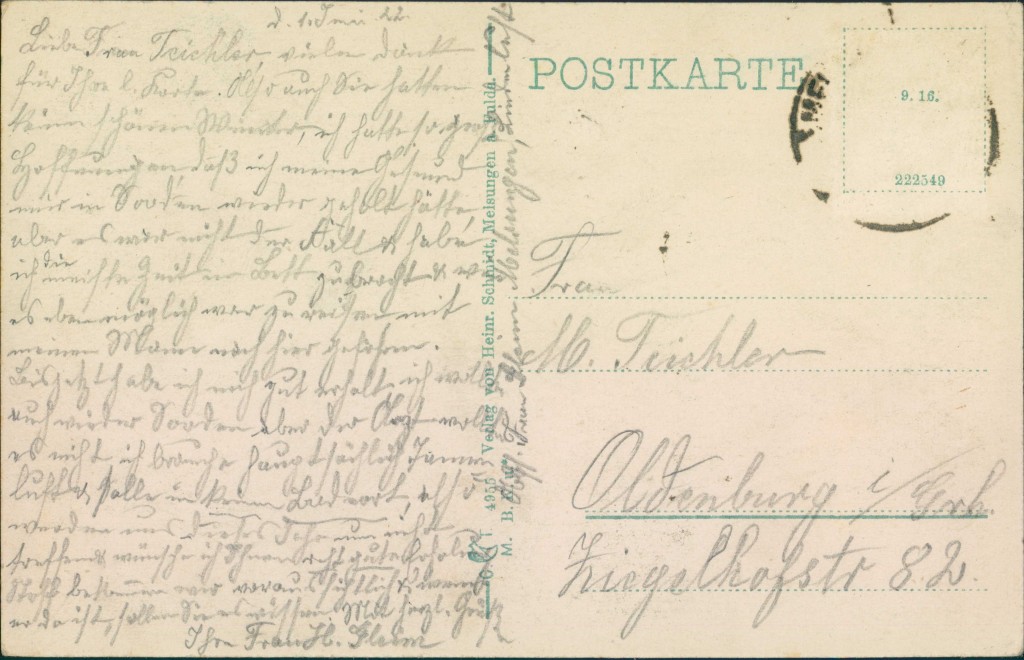 d. 1. Juni 22.
Liebe Frau Teichler, vielen Dank
für Ihre l. Karte. Also auch Sie hatten
keinen schönen Winter, ich hatte so große
Hoffnungen daß ich meine Gesund
mir in Sooden wieder geholt hätte,
aber es war nicht der Fall & habe
ich die meiste Zeit im Bett zubracht &
es eben möglich war zu reisen mit
meinem Mann nach hier gefahren.
Bis jetzt habe ich mich gut erholt, ich wollte
auch wieder Sooden aber der Arzt wollte
es nicht ich brauche hauptsächlich Tannen
luft & solle in keinen Badeort, also
werden uns dieses Jahr nun nicht
treffen & wünsche ich Ihnen recht gute Erholung
bekommen wir voraussichtlich & wenn
er da ist, sollen Sie es wissen. Mit herzl. Gruß
Ihre Frau H. Gleim
Frau Gleim Melsungen, Lindenlust
M. B. 4955 Verlag von Heinr. Schmidt, Melsungen a. Fulda.
POSTKARTE
9. 16.
222549
MEL
Frau
M. Teichler
Oldenburg i/Grh.
Ziegelhofstr 82.